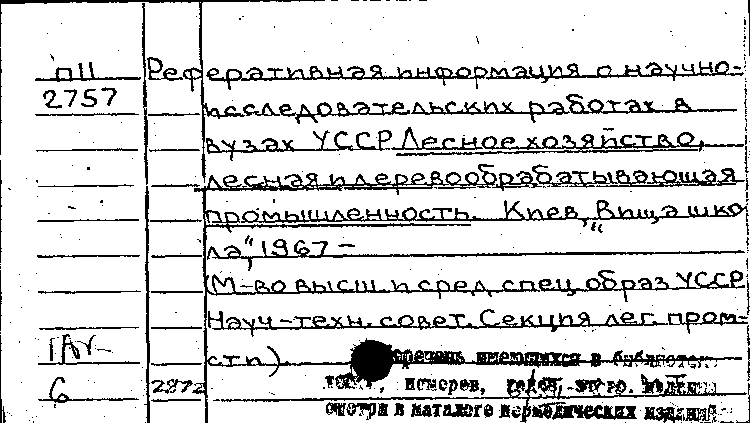 пII Реферативная информация о научно-
2757 исследовательских работах в
вузах УССР Лесное хозяйство,
лесная и деревообрабатывающая
промышленность. Киев, „Вища шко
ла", 1967 –
(М-во высш. и сред. спец. образ. УССР
Науч-техн. совет. Секция лег. пром-
сти).
перечень имеющихся в библиотеке
6 2872 томов, номеров,
смотри в каталоге периодических изданий